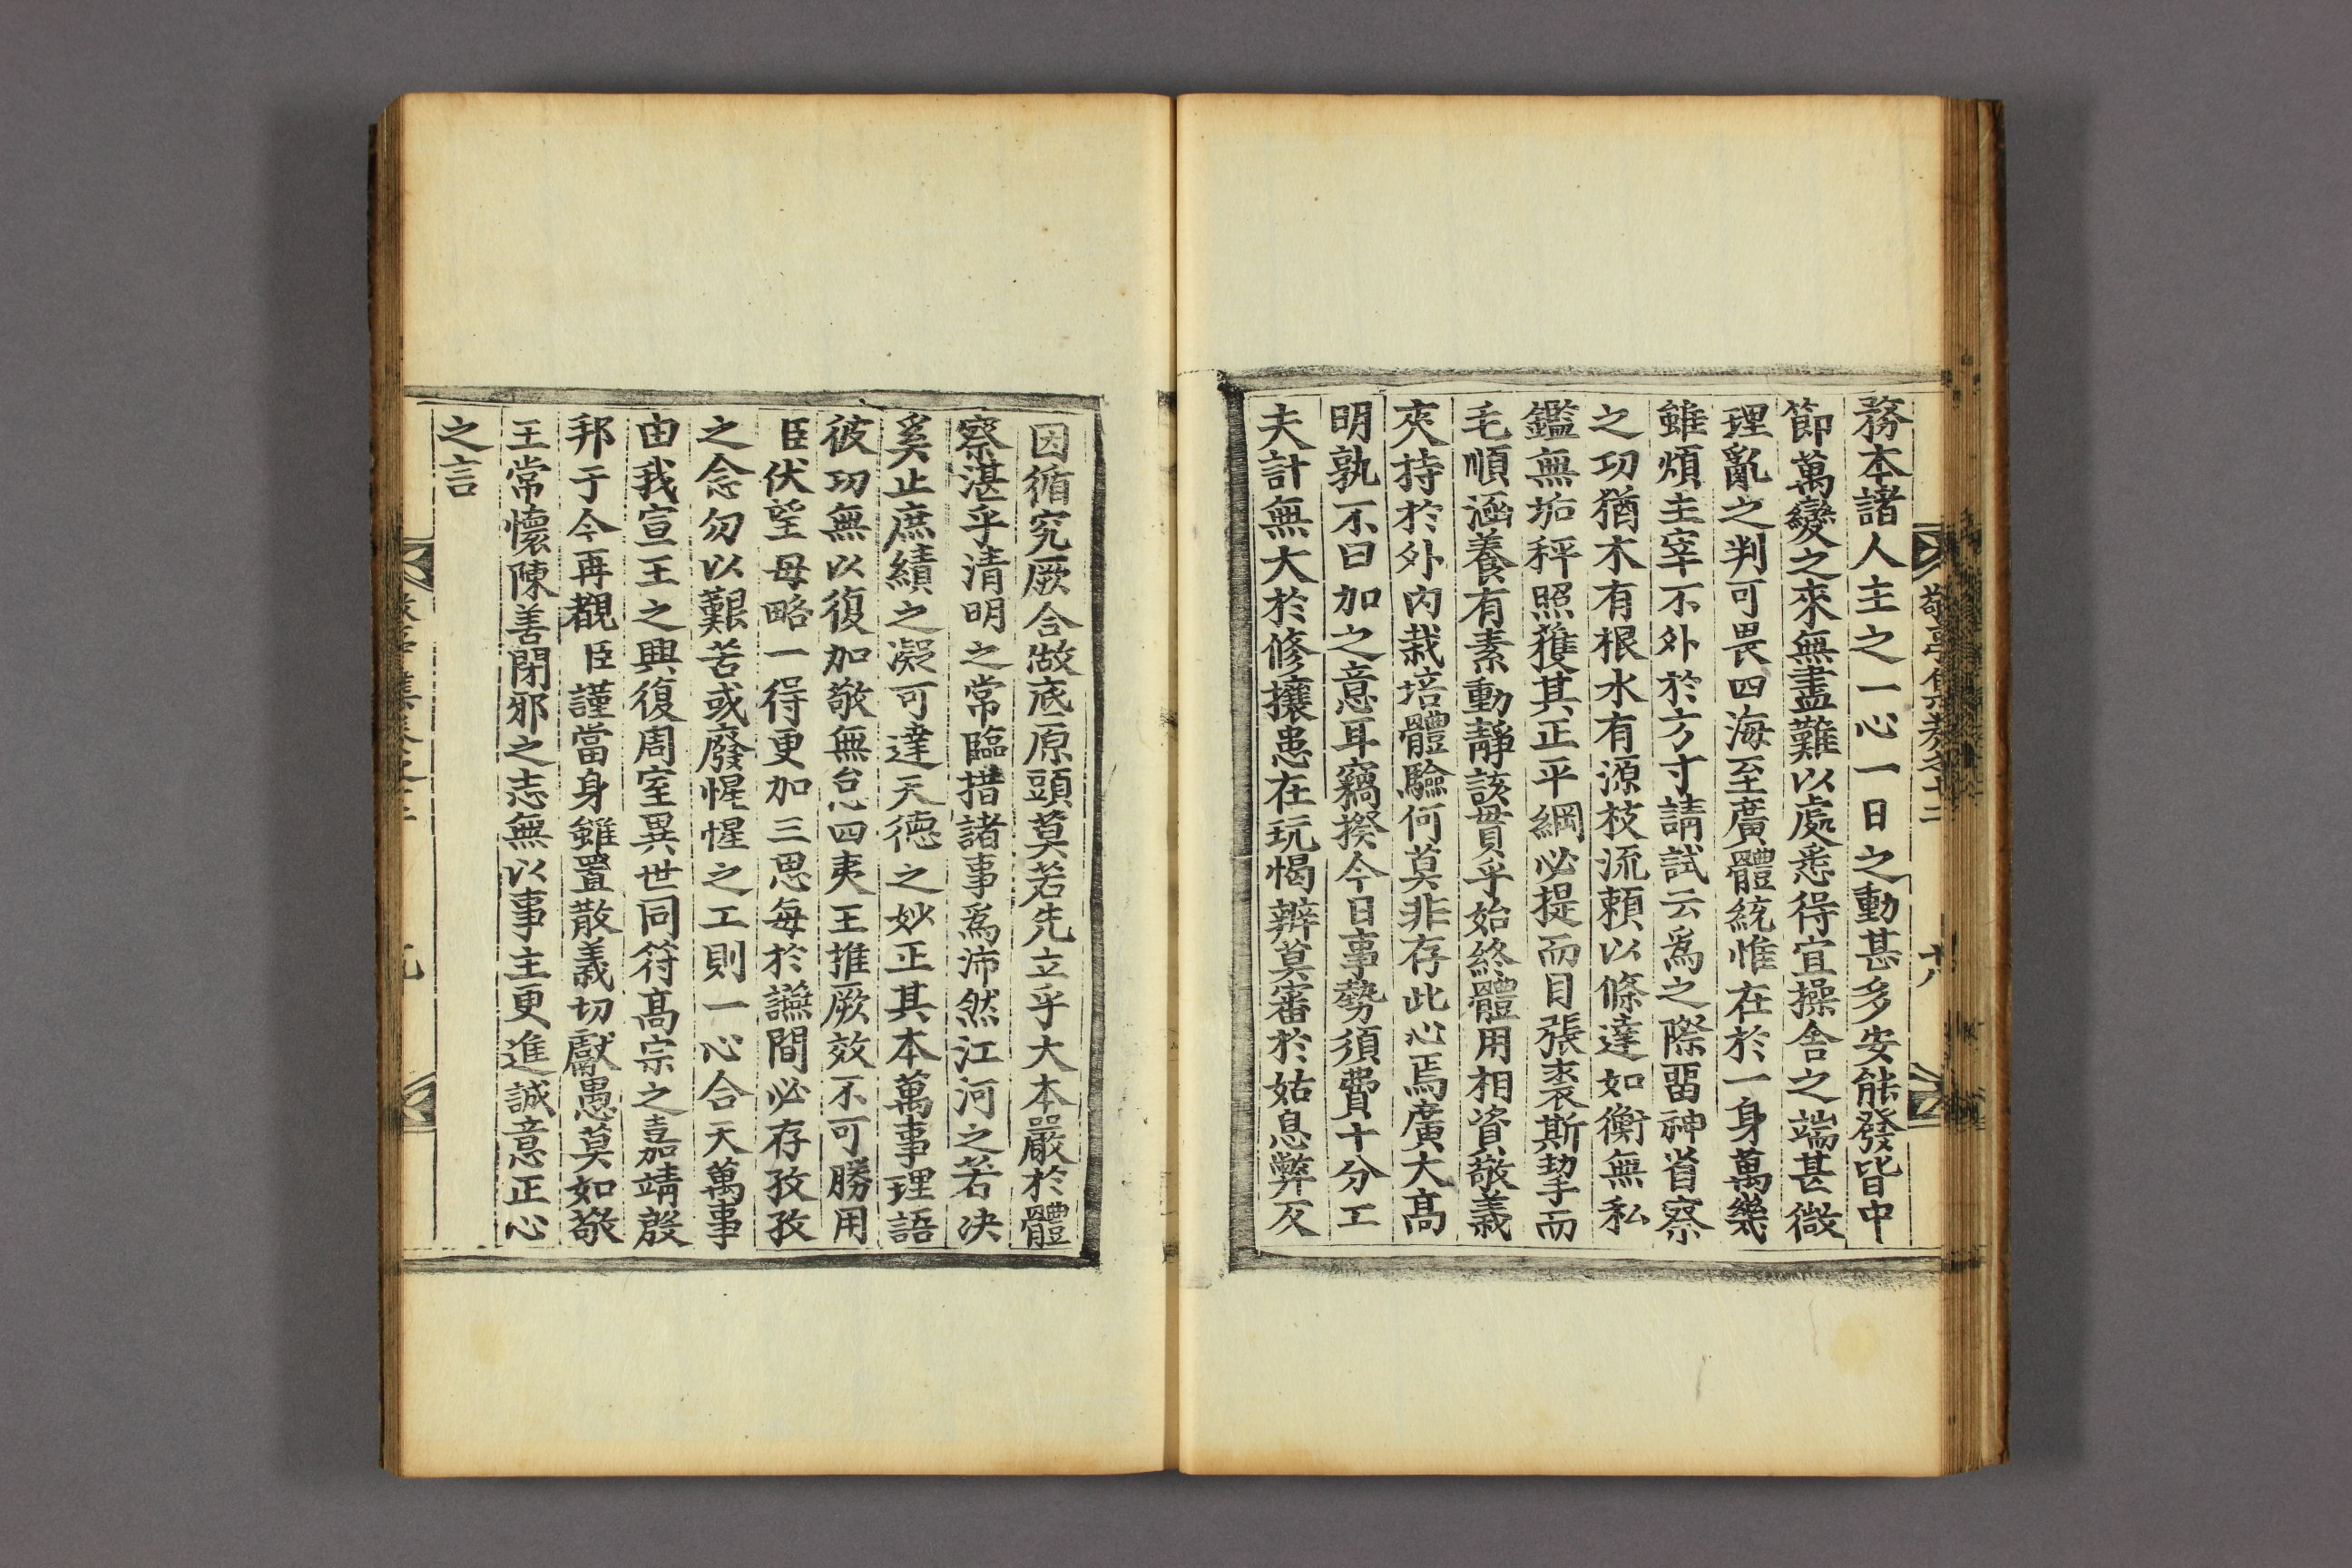 敬亭集卷之十二 十八
務本諸人主之一心一日之動甚多安能發皆中
節萬變之來無盡難以處悉得宜操舍之端甚微
理亂之判可畏四海至廣體統惟在於一身萬幾
雖煩主宰不外於方寸請試云爲之際留神省察
之功猶木有根水有源枝流賴以條達如衡無私
鑑無垢秤照獲其正平綱必提而目張裘斯挈而
毛順涵養有素動靜該貫乎始終體用相資敬義
夾持於外內栽培體驗何莫非存此心焉廣大高
明孰不曰加之意耳竊揆今日事勢須費十分工
夫計無大於修攘患在玩愒辨莫審於姑息弊反
因循究厥合做底原頭莫若先立乎大本嚴於體
察湛乎淸明之常臨措諸事爲沛然江河之若决
奚止庶績之凝可達天德之妙正其本萬事理語
彼功無以復加敬無怠四夷王推厥效不可勝用
臣伏望毋略一得更加三思每於讌間必存孜孜
之念勿以艱苦或廢惺惺之工則一心合天萬事
由我宣王之興復周室異世同符高宗之嘉靖殷
邦于今再覩臣謹當身雖置散義切獻愚莫如敬
王常懷陳善閉邪之志無以事主更進誠意正心
之言